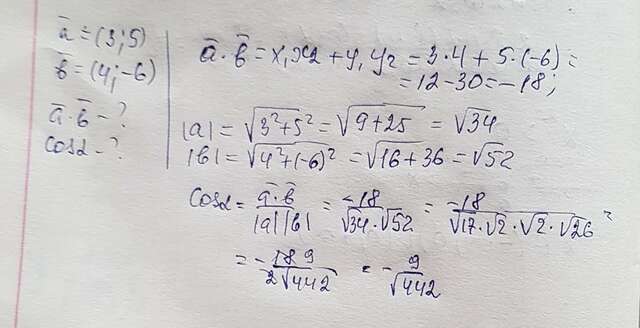 a̅ = (3; 5)
b̅ = (4; -6)
a̅ · b̅ - ?
cosα - ?
a̅ · b̅ = x₁x₂ + y₁y₂ = 3·4 + 5·(-6) =
= 12 - 30 = -18;
|a| = √(3² + 5²) = √(9 + 25) = √34
|b| = √(4² + (-6)²) = √(16 + 36) = √52
cosα = a̅·b̅ / |a||b| = -18 / √34·√52 = -18 / √17·√2·√2·√26 =
= -18 9 / 2√442 = - 9 / √442